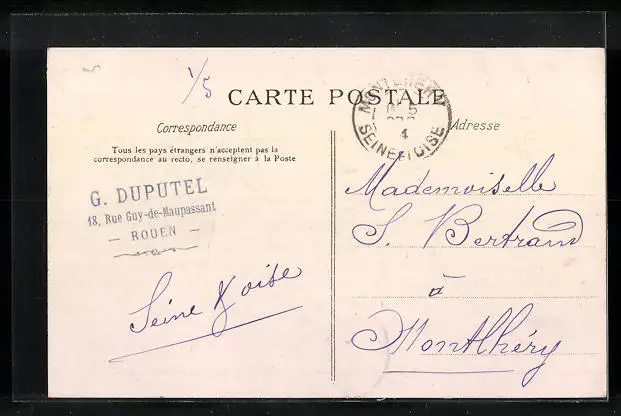 1/5
CARTE POSTALE
Correspondance
Adresse
Tous les pays étrangers n'acceptent pas la
correspondance au recto, se renseigner à la Poste
G. DUPUTEL
18, Rue Guy-de-Maupassant
— ROUEN —
Seine & oise
SEINE ET OISE
4
Mademoiselle
S. Bertrand
à
Montlhéry